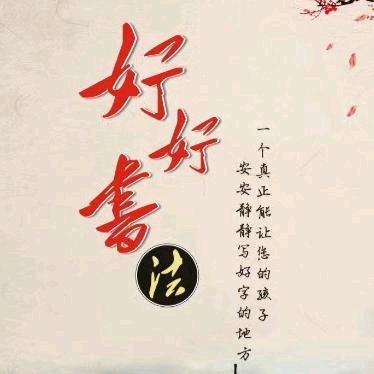 好好書法
一个真正能让您的孩子
安安静静写好字的地方